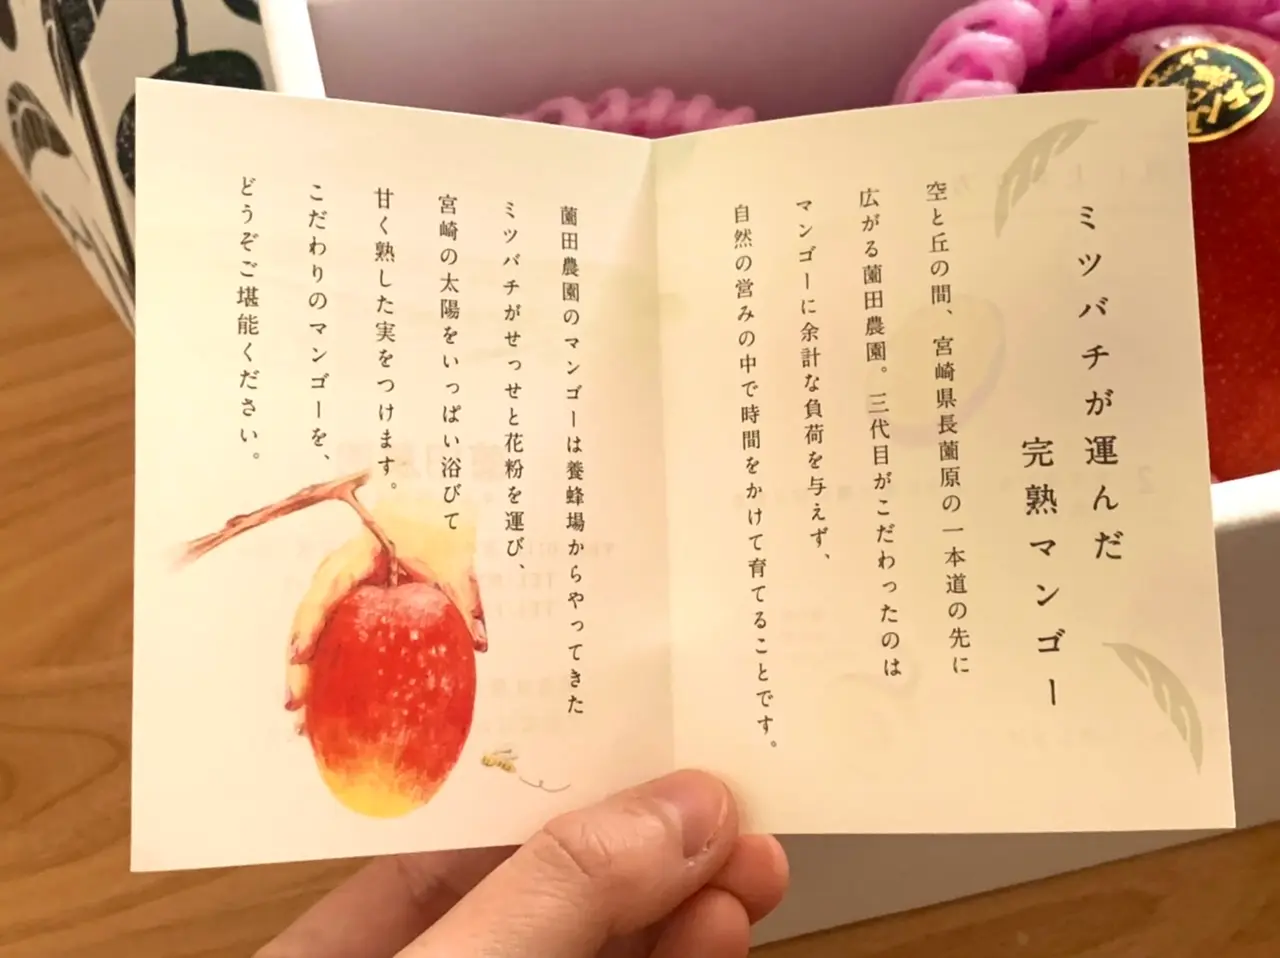 ミツバチが運んだ
完熟マンゴー
空と丘の間、宮崎県長薗原の一本道の先に
広がる薗田農園。三代目がこだわったのは
マンゴーに余計な負荷を与えず、
自然の営みの中で時間をかけて育てることです。
薗田農園のマンゴーは養蜂場からやってきた
ミツバチがせっせと花粉を運び、
宮崎の太陽をいっぱい浴びて
甘く熟した実をつけます。
こだわりのマンゴーを、
どうぞご堪能ください。